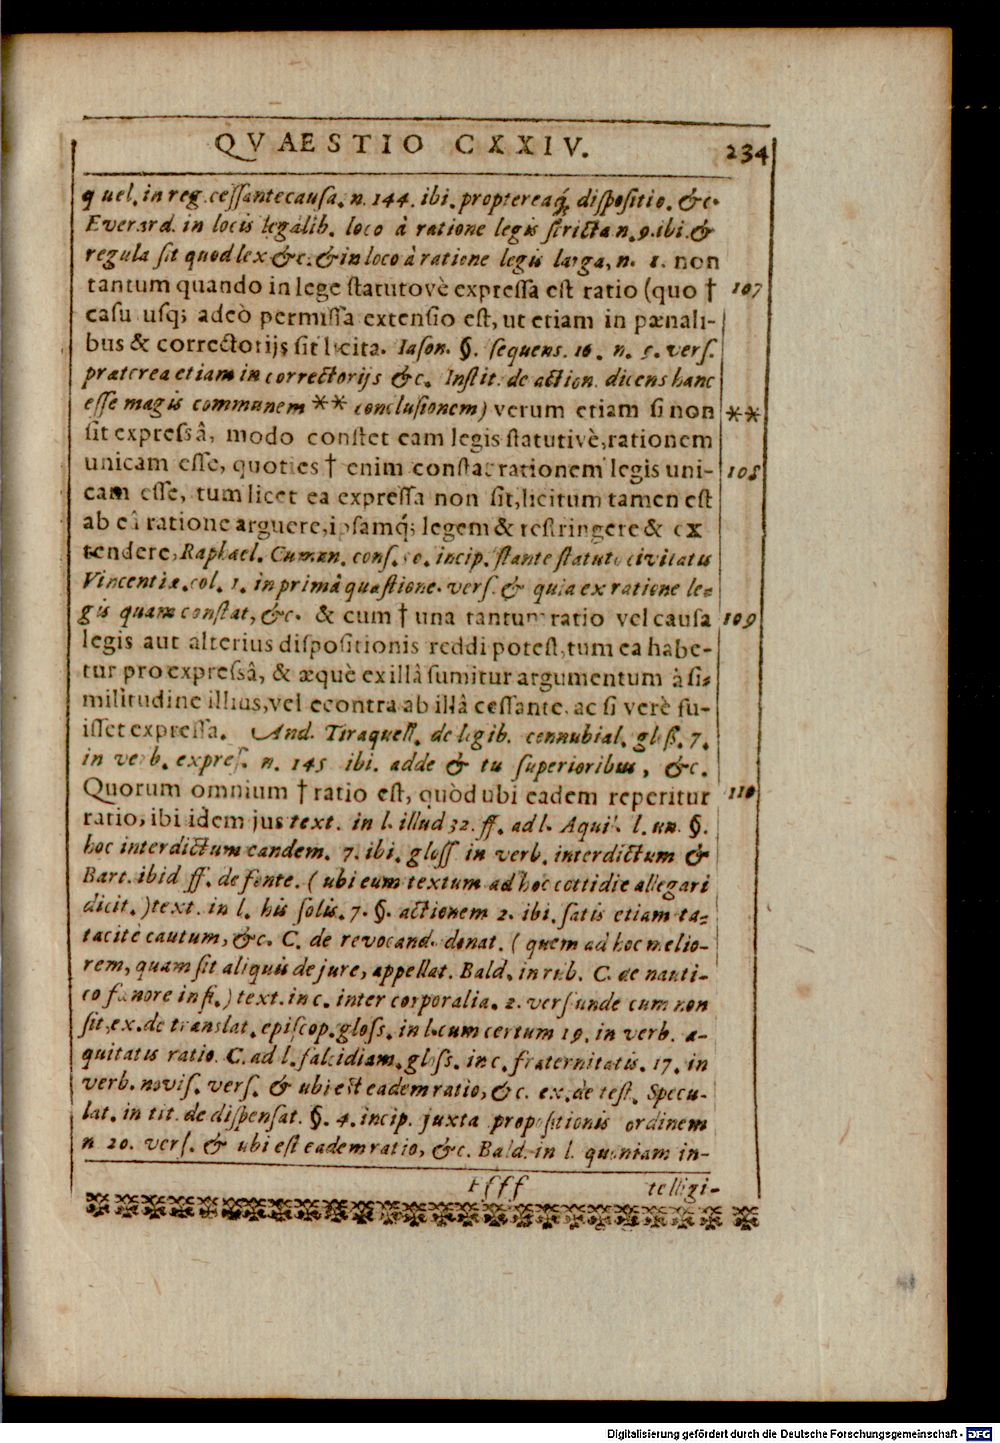 QVAESTIO CXXIV. 234
quel. in reg. cessante causa. n. 144. ibi. proptereaq́; dispositio. &c.
Everard. in locis legalib. loco à ratione legis stricta n. 9. ibi. &
regula sit quod lex &c. & in loco à ratione legis larga, n. 1. non
tantum quando in lege statutovè expressa est ratio (quo † 107
casu usq; adeò permissa extensio est, ut etiam in pænali-
bus & correctorijs sit licita. Iason. §. sequens. 16. n. 5. vers.
præterea etiam in correctorijs &c. Instit. de action. dicens hanc
esse magis communem ** conclusionem) verum etiam si non **
sit expressâ, modo constet eam legis statutivè, rationem
unicam esse, quoties † enim constat rationem legis uni- 108
cam esse, tum licet ea expressa non sit, licitum tamen est
ab eâ ratione arguere, ipsamq́; legem & restringere & ex
tendere, Raphael. Cuman. cons. incip. stante statuto civitatis
Vincentiæ. col. 1. in primâ quæstione. vers. & quia ex ratione le-
gis quam constat, &c. & cum † una tantum ratio vel causa 109
legis aut alterius dispositionis reddi potest, tum ea habe-
tur pro expressâ, & æquè ex illâ sumitur argumentum à si-
militudine illius, vel econtra ab illâ cessante. ac si verè fu-
isset expressa. And. Tiraquell. de legib. connubial. gloß. 7.
in verb. expres. n. 145 ibi. adde & tu superioribus, &c.
Quorum omnium † ratio est, quòd ubi eadem reperitur 110
ratio, ibi idem jus text. in l. illud 32. ff. ad l. Aquil. l. un. §.
hoc interdictum eandem. 7. ibi. gloss in verb. interdictum &
Bart. ibid ff. de fonte. (ubi eum textum ad hoc cottidie allegari
dicit.) text. in l. his solis. 7. §. actionem 2. ibi. satis etiam ta-
tacitè cautum, &c. C. de revocand. donat. (quem ad hoc melio-
rem, quam sit aliquis de jure, appellat. Bald. in rub. C. de nauti-
co fœnore in fi.) text. in c. inter corporalia. 2. vers unde cum non
sit, ex. de translat. episcop. gloss. in l. cum certum 19. in verb. a-
quitatis ratio. C. ad l. falcidiam. gloss. in c. fraternitatis. 17. in
verb. novis. vers. & ubi est eadem ratio, & c. ex. de test. Specu-
lat. in tit. de dispensat. §. 4. incip. juxta propositionis ordinem
n 20. vers. & ubi est eadem ratio, &c. Bald. in l. quoniam in-
Ffff telligi-
Digitalisierung gefördert durch die Deutsche Forschungsgemeinschaft - DFG